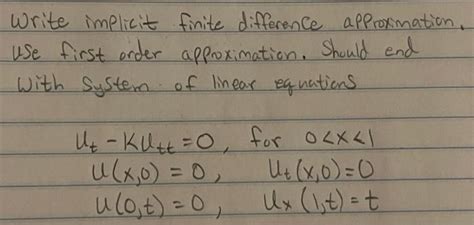 Write implicit finite difference approximation.
use first order approximation. Should end
With system of linear equations
U_t - KU_tt = 0, for 0<x<1
U(x,0) = 0, U_t(x,0) = 0
U(0,t) = 0, U_x(1,t) = t